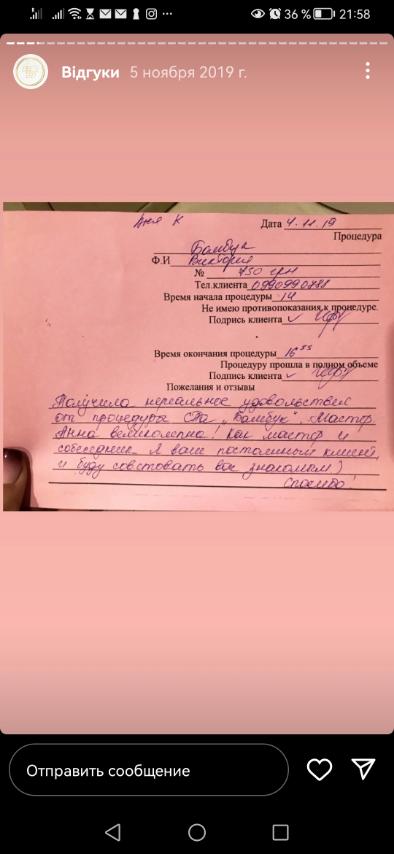 21:58
36 %
Відгуки 5 ноября 2019 г.
Аня К
Дата 4.11.19
Процедура
Бамбук
Ф.И Виктория
№ 750 грн
Тел.клиента 0990990781
Время начала процедуры 14
Не имею противопоказания к процедуре.
Подпись клиента
Время окончания процедуры 16 55
Процедуру прошла в полном объеме
Подпись клиента
Пожелания и отзывы
Получила нереальное удовольствие
от процедуры Спа „Бамбук". Мастер
Анна великолепна! Как мастер и
собеседник. Я ваш постоянный клиент,
и буду советовать вас знакомым)
Спасибо!
Отправить сообщение